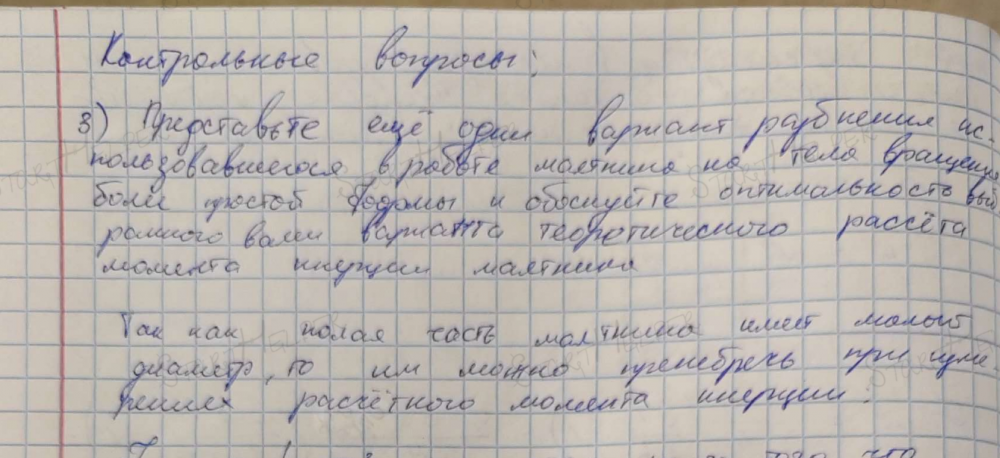 Контрольные вопросы:
3) Представьте ещё один вариант разбиения ис-
пользовавшегося в работе маятника на тела вращения
более простой формы и обоснуйте оптимальность выб
ранного вами варианта теоретического рассёта
момента инерции маятника
Так как полая часть маятника имеет малый
диаметр, то им можно пренебречь при изме-
рениях расчётного момента инерции.
что